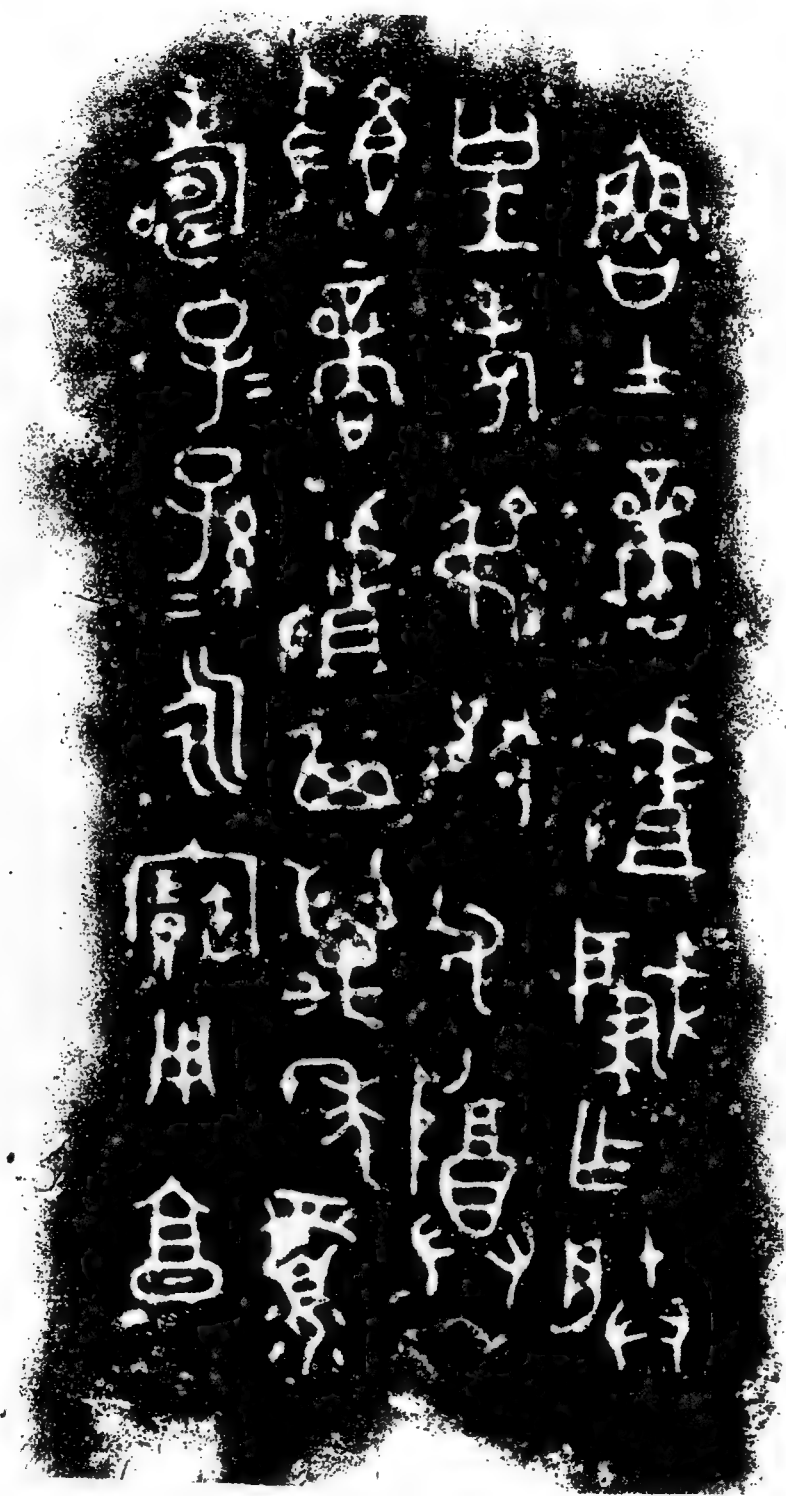 魯士商𠭯肇乍朕
皇考叔猒父尊
𣪘商𠭯其萬年眉
壽子=孫=永寶用享